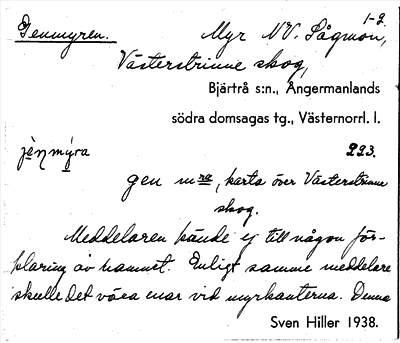 1-2.
Genmyren. Myr NV. Sågmon,
Västerstrinne skog,
Bjärtrå s:n., Ångermanlands
södra domsagas tg., Västernorrl. l.
223.
gen m ra, karta över Västerstrinne
skog.
Meddelaren kände ej till någon för-
klaring av namnet. Enligt samme meddelare
skulle det växa enar vid myrkanterna. Denna
Sven Hiller 1938.